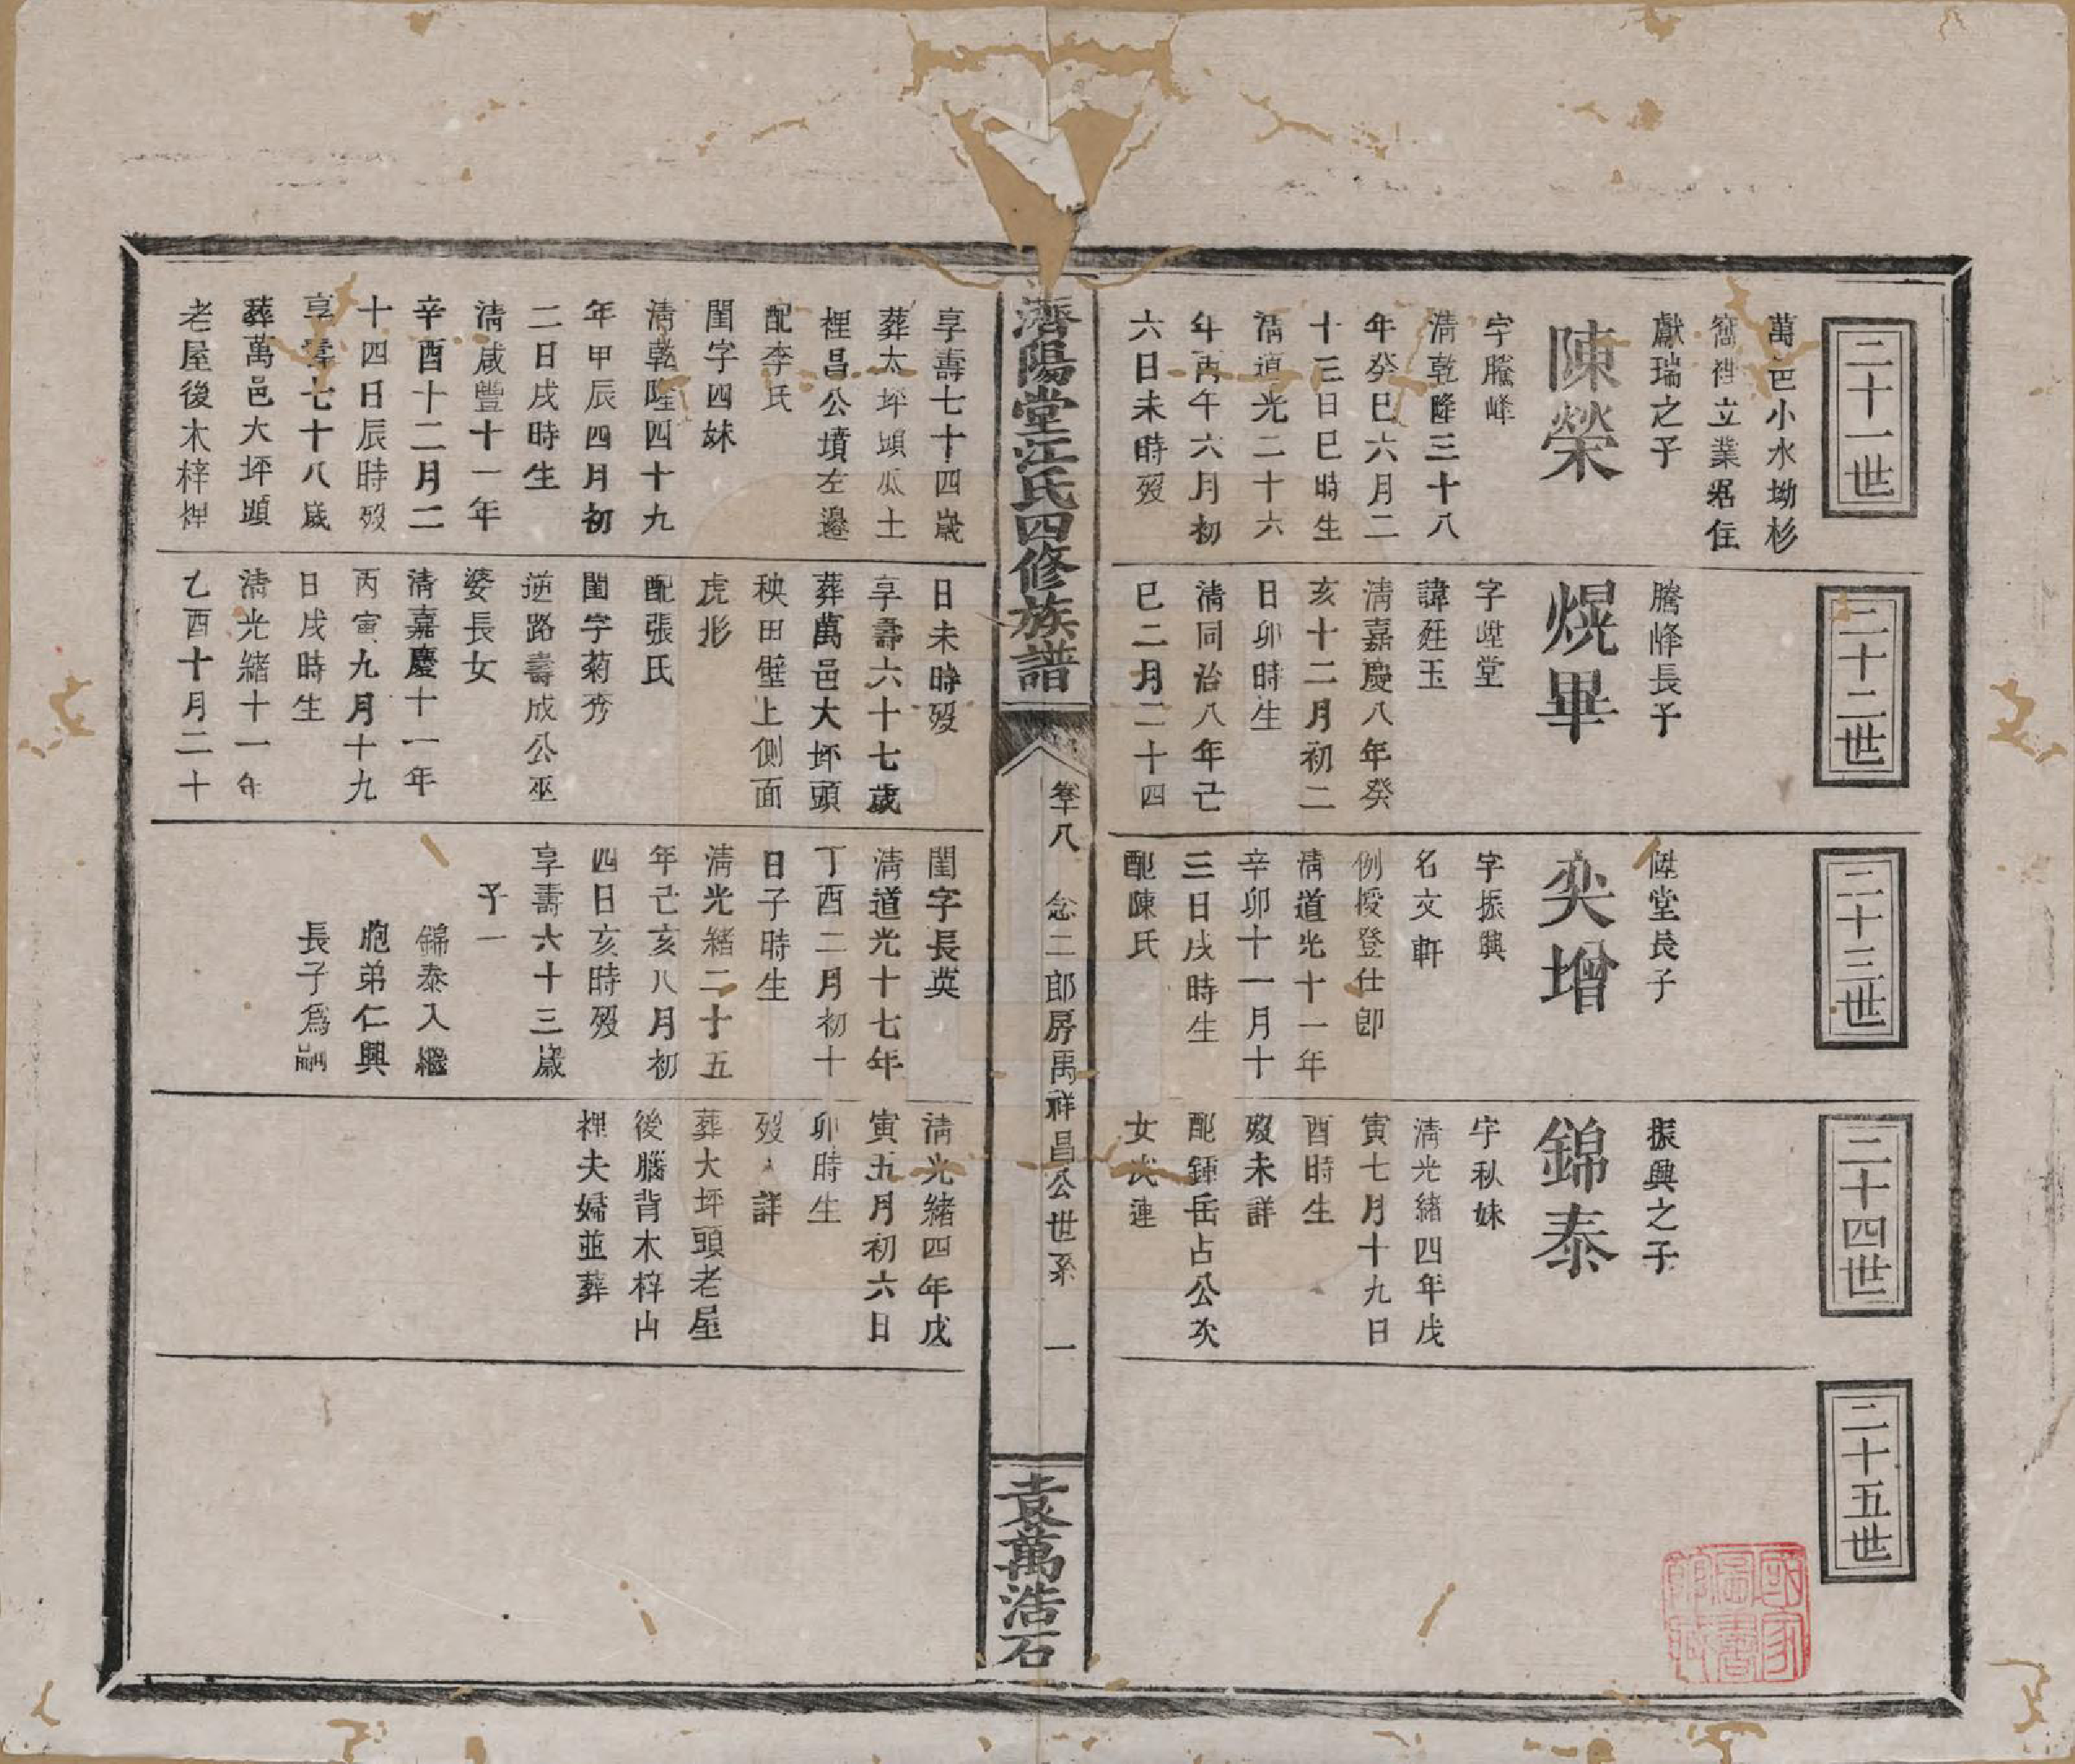 二十一世
萬邑小水坳杉
窩裡立業居住
獻瑞之子
陳榮
字騰峰
清乾隆三十八
年癸巳六月二
十三日巳時生
清道光二十六
年丙午六月初
六日未時殁
享壽七十四歲
葬太坪頭瓜土
裡昌公墳左邊
配李氏
閨字四妹
清乾隆四十九
年甲辰四月初
二日戌時生
清咸豐十一年
辛酉十二月二
十四日辰時殁
享壽七十八歲
葬萬邑大坪頭
老屋後木梓裡
二十二世
騰峰長子
熀畢
字陞堂
諱廷玉
清嘉慶八年癸
亥十二月初二
日卯時生
清同治八年己
巳二月二十四
日未時殁
享壽六十七歲
葬萬邑大坪頭
秧田壁上側面
虎形
配張氏
閨字菊秀
逆路壽成公巫
婆長女
清嘉慶十一年
丙寅九月十九
日戌時生
清光緒十一年
乙酉十月二十
二十三世
陞堂長子
奕增
字振興
名文軒
例授登仕郎
清道光十一年
辛卯十一月十
三日戌時生
配陳氏
閨字長英
清道光十七年
丁酉二月初十
日子時生
清光緒二十五
年己亥八月初
四日亥時殁
享壽六十三歲
子一
錦泰入繼
胞弟仁興
長子爲嗣
二十四世
振興之子
錦泰
字秋妹
清光緒四年戊
寅七月十九日
酉時生
殁未詳
配鍾岳占公次
女氏連
清光緒四年戊
寅五月初六日
卯時生
殁 詳
葬大坪頭老屋
後腦背木梓山
裡夫婦並葬
二十五世
濟陽堂江氏四修族譜
卷十八 念二郎房禹祥昌公世系 一
袁萬浩石
國家圖書館藏